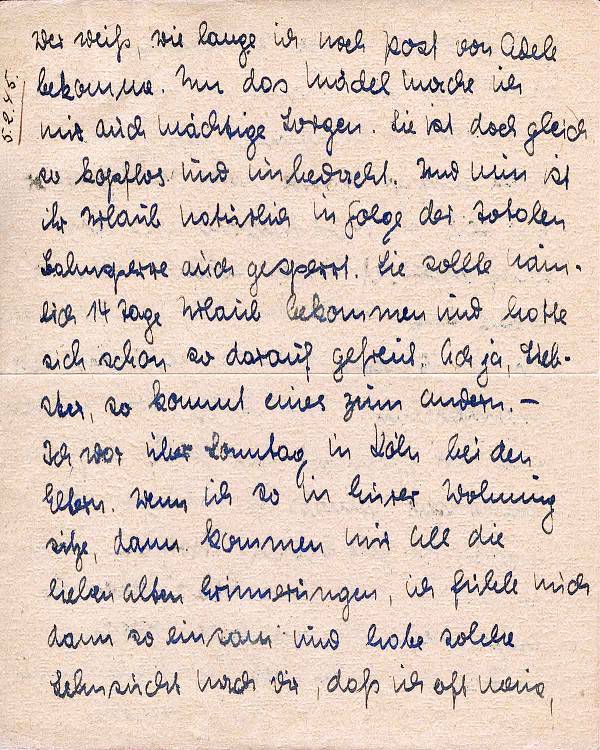 5.2.45.
Wer weiß, wie lange ich noch Post von Adele
bekomme. Um das Mädel mache ich
mir auch mächtige Sorgen. Sie ist doch gleich
so kopflos und unbedacht. Und nun ist
ihr Urlaub natürlich in Folge der totalen
Bahnsperre auch gesperrt. Sie sollte näm-
lich 14 Tage Urlaub bekommen und hatte
sich schon so darauf gefreut. Ach ja, Lieb-
ster, so kommt eines zum andern. –
Ich war über Sonntag in Köln bei den
Eltern. Wenn ich so in Eurer Wohnung
sitze, dann kommen mir all die
lieben alten Erinnerungen, ich fühle mich
dann so einsam und habe solche
Sehnsucht nach Dir, daß ich oft meine,